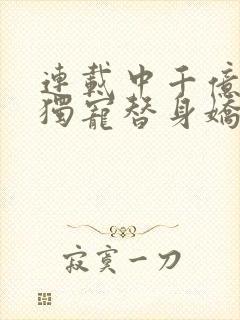 連載中千億
獨寵替身嬌
寂寞一刀